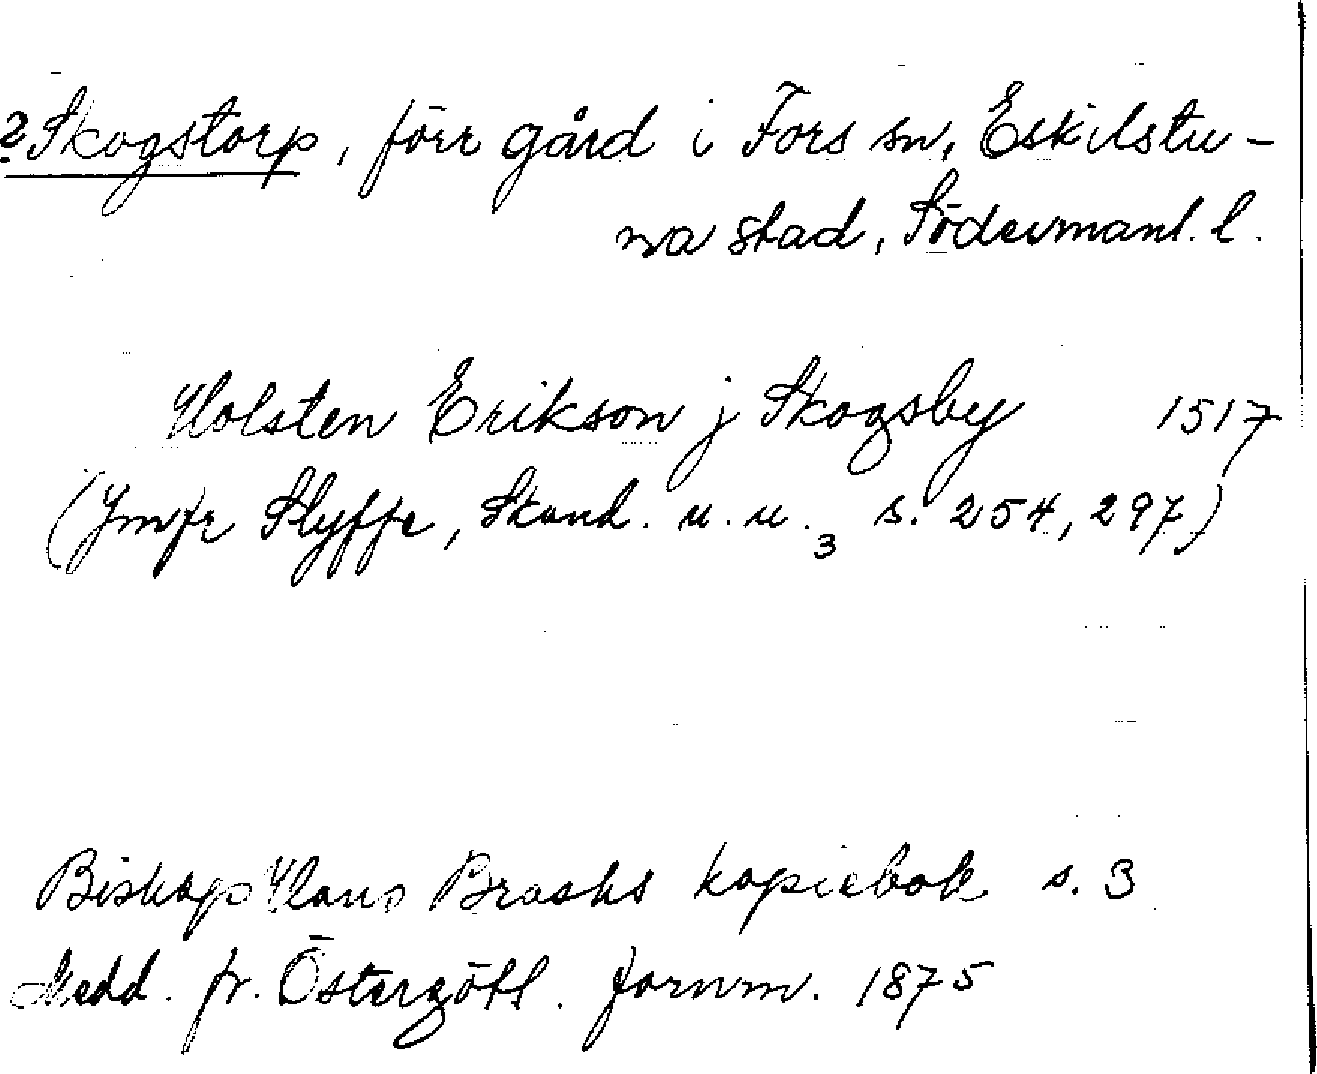 ? Skogstorp, förr gård i Fors sn, Eskilstu-
na stad, Södermanl. l.
Holsten Erikson j Skogsby 1517
(Jmfr Styffe, Skand. u. u. 3 s. 254, 297)
Biskop Hans Brasks kopiebok s. 3
Medd. fr. Östergötl. fornm. 1875